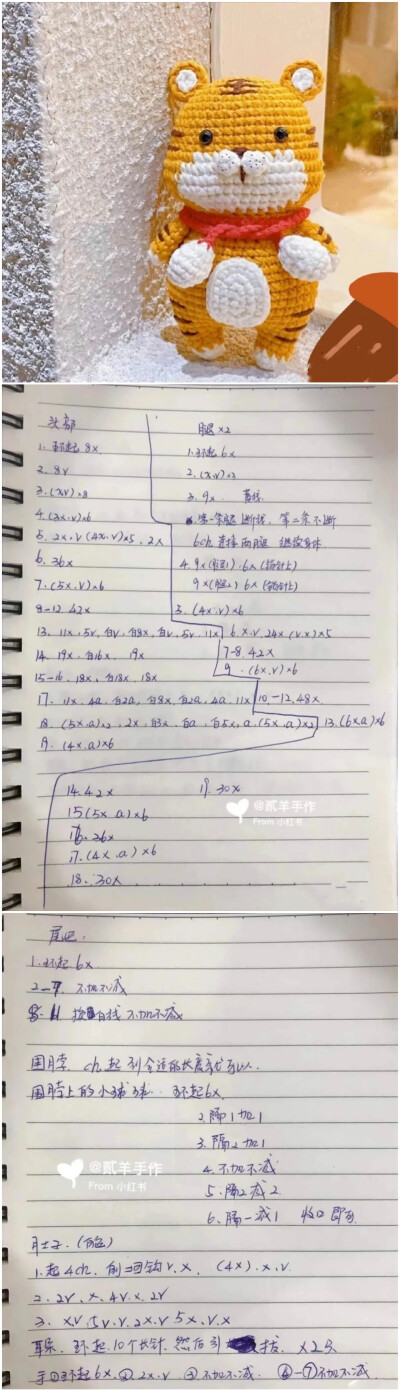 头部
1. 环起 8x
2. 8v
3. (x.v)×8
4. (3x.v)×6
5. 2x.v (4x.v)×5. 2x
6. 36x
7. (5x.v)×6
8-12. 42x
13. 11x. 5v. 白v. 白8x. 白v. 5v. 11x
14. 19x. 白16x. 19x
15-16. 18x. 白18x. 18x
17. 11x. 4a. 白2a. 白8x. 白2a. 4a. 11x
18. (5x.a)×2. 2x. 白3x. 白a. 白5x. a. (5x.a)×2
19. (4x.a)×6
腿×2
1. 环起 6x
2. (x.v)×3
3. 9x. 黄线
第一条腿断线, 第二条不断
6ch 连接两腿 继续身体
4. 9x(腿1) 6x(锁针上)
9x(腿2) 6x(锁针上)
5. (4x.v)×6
6. x.v. 24x (v.x)×5
7-8. 42x
9. (6x.v)×6
10.-12. 48x
13. (6x.a)×6
14. 42x
15 (5x.a)×6
16. 36x
17. (4x.a)×6
18. 30x
19. 30x
@贰羊手作
From 小红书
尾巴:
1. 环起 6x
2-7. 不加不减
8-11 换白线 不加不减
围脖. ch起 到合适的长度就可以.
围脖上的小球球. 环起6x.
2. 隔1加1
3. 隔2加1
4. 不加不减
5. 隔2减2
6. 隔一减1 收口即可
@贰羊手作
From 小红书
肚子. (白色)
1. 起4ch. 倒二回钩 v. x. (4x). x. v
2. 2v. x. 4v. x. 2v
3. xv. 5v. v. 2x v 5x. v. x
耳朵. 环起10个长针. 然后引拔. ×2只
手 ①环起 6x. ②. 2x. v ③ 不加不减. ④-⑦不加不减.